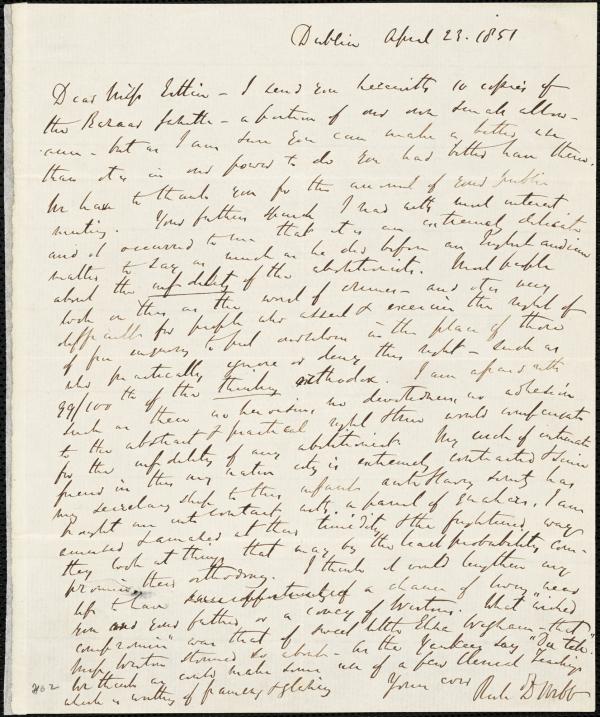 Dublin April 23. 1851
Dear Miss Estlin - I send you herewith 10 copies of
the Bazaar Gazette - a portion of our own small allow-
ance - but as I am sure you can make a better use
than it is in our power to do you had better have them.
We have to thank you for the account of your public
meeting. Your father's speech I read with much interest
and it occurred to me that it is an extremely delicate
matter to say as much as he did before an English audience
about the infidelity of the abolitionists. Most people
look on this as the worst of crimes - and it is very
difficult for people who assert & exercise the right of
free enquiry to put ourselves in the place of those
who practically ignore or deny this right - such as
99/100 ths of the thinking orthodox. I am afraid with
such as these no heroism, no devotedness, no adhesion
to the abstract & practical right & true would compensate
for the infidelity of any abolitionist. My circle of intimate
friends in this my native city is extremely contracted & since
my secretary ship to this infant Anti Slavery Society has
brought me into contact with a parcel of Quakers, I am
amused & amazed at their timidity & the frightened way
they look at things that may by the least probability com-
promise their orthodoxy. I think it would lengthen my
life to have a chance of living near
you and your father or a covey of Westons. What "wicked
compromise" was that of sweet little Eliza Wigham - that
Miss Weston stormed so about - as the Yankees say "Du tell."
We think we could make some use of a few Clerical Teachings
which is worthy of framing & glazing
Yours ever Rich D Webb